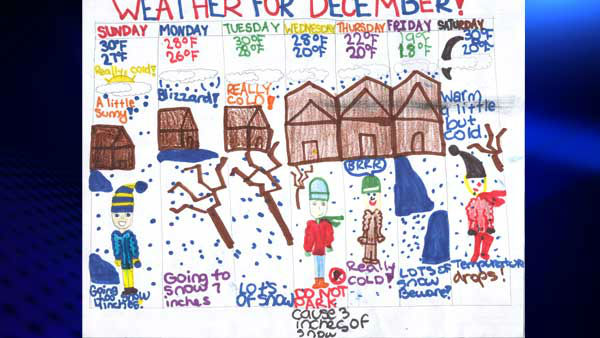 WEATHER FOR DECEMBER!
SUNDAY MONDAY TUESDAY WEDNESDAY THURSDAY FRIDAY SATURDAY
30°F 28°F 30°F 28°F 22°F 19°F 30°F
27°F 26°F 28°F 20°F 20°F 18°F 20°F
Really cold!
A little
Sunny!
Blizzard!
REALLY
COLD!
Warm
a little
but
cold.
BRRR
Going
to snow
4 inches.
Going to
snow 7
inches
Lots
of snow
DO NOT
PARK
cause 3
inches of
snow
Really
COLD!
LOTS OF
SNOW
Beware!
Temperature
drops!